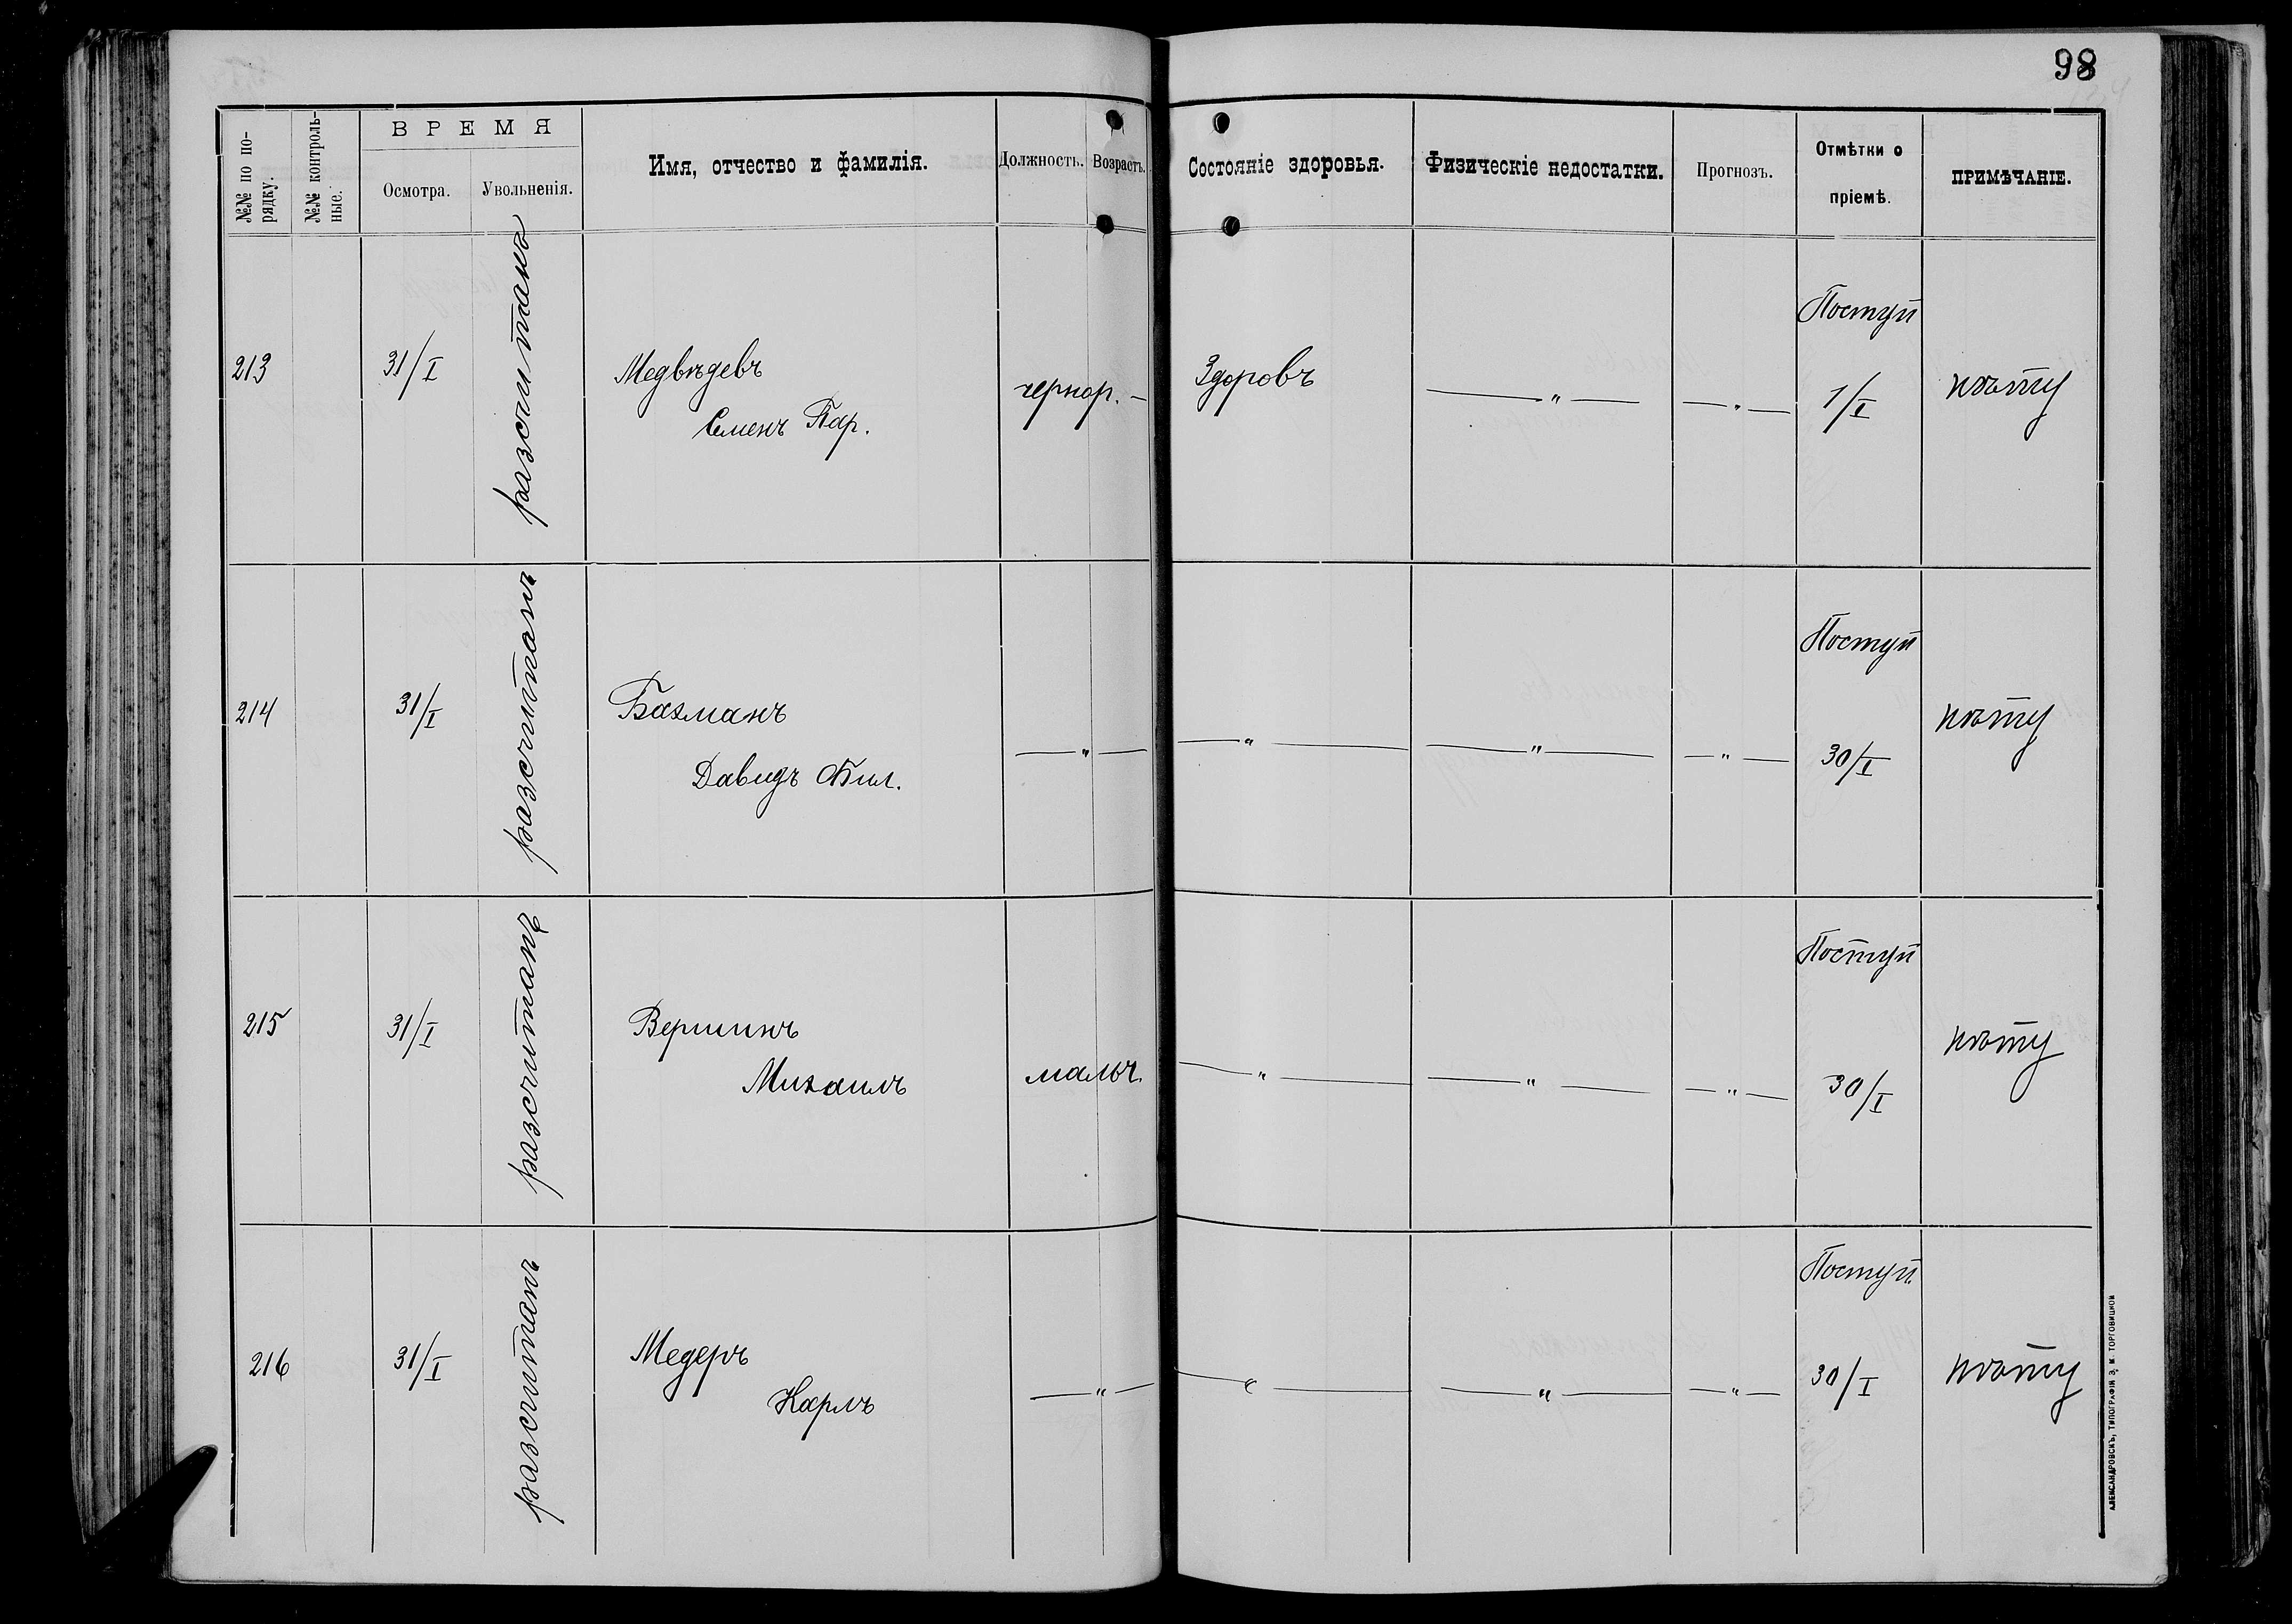 98
№№ по по-
рядку.
№№ контроль-
ные.
ВРЕМЯ
Осмотра.
Увольненія.
Имя, отчество и фамилія.
Должность.
Возрастъ.
Состояніе здоровья.
Физическіе недостатки.
Прогнозъ.
Отмѣтки о
пріемѣ.
ПРИМѢЧАНІЕ.
213
31/I
разсчитанъ
Медвѣдевъ
Семенъ
чернор. —
Здоровъ
— " —
— " —
Поступ
1/I
214
31/I
разсчитанъ
Бахманъ
Давидъ
— " —
— " —
— " —
— " —
Поступ
30/I
215
31/I
разсчитанъ
Вершинъ
Михаилъ
мальч.
— " —
— " —
— " —
Поступ
30/I
216
31/I
разсчитанъ
Медеръ
Карлъ
— " —
— " —
— " —
— " —
Поступ.
30/I
АЛЕКСАНДРОВСКЪ, ТИПОГРАФІЯ З. М. ТОРГОВИЦКОЙ